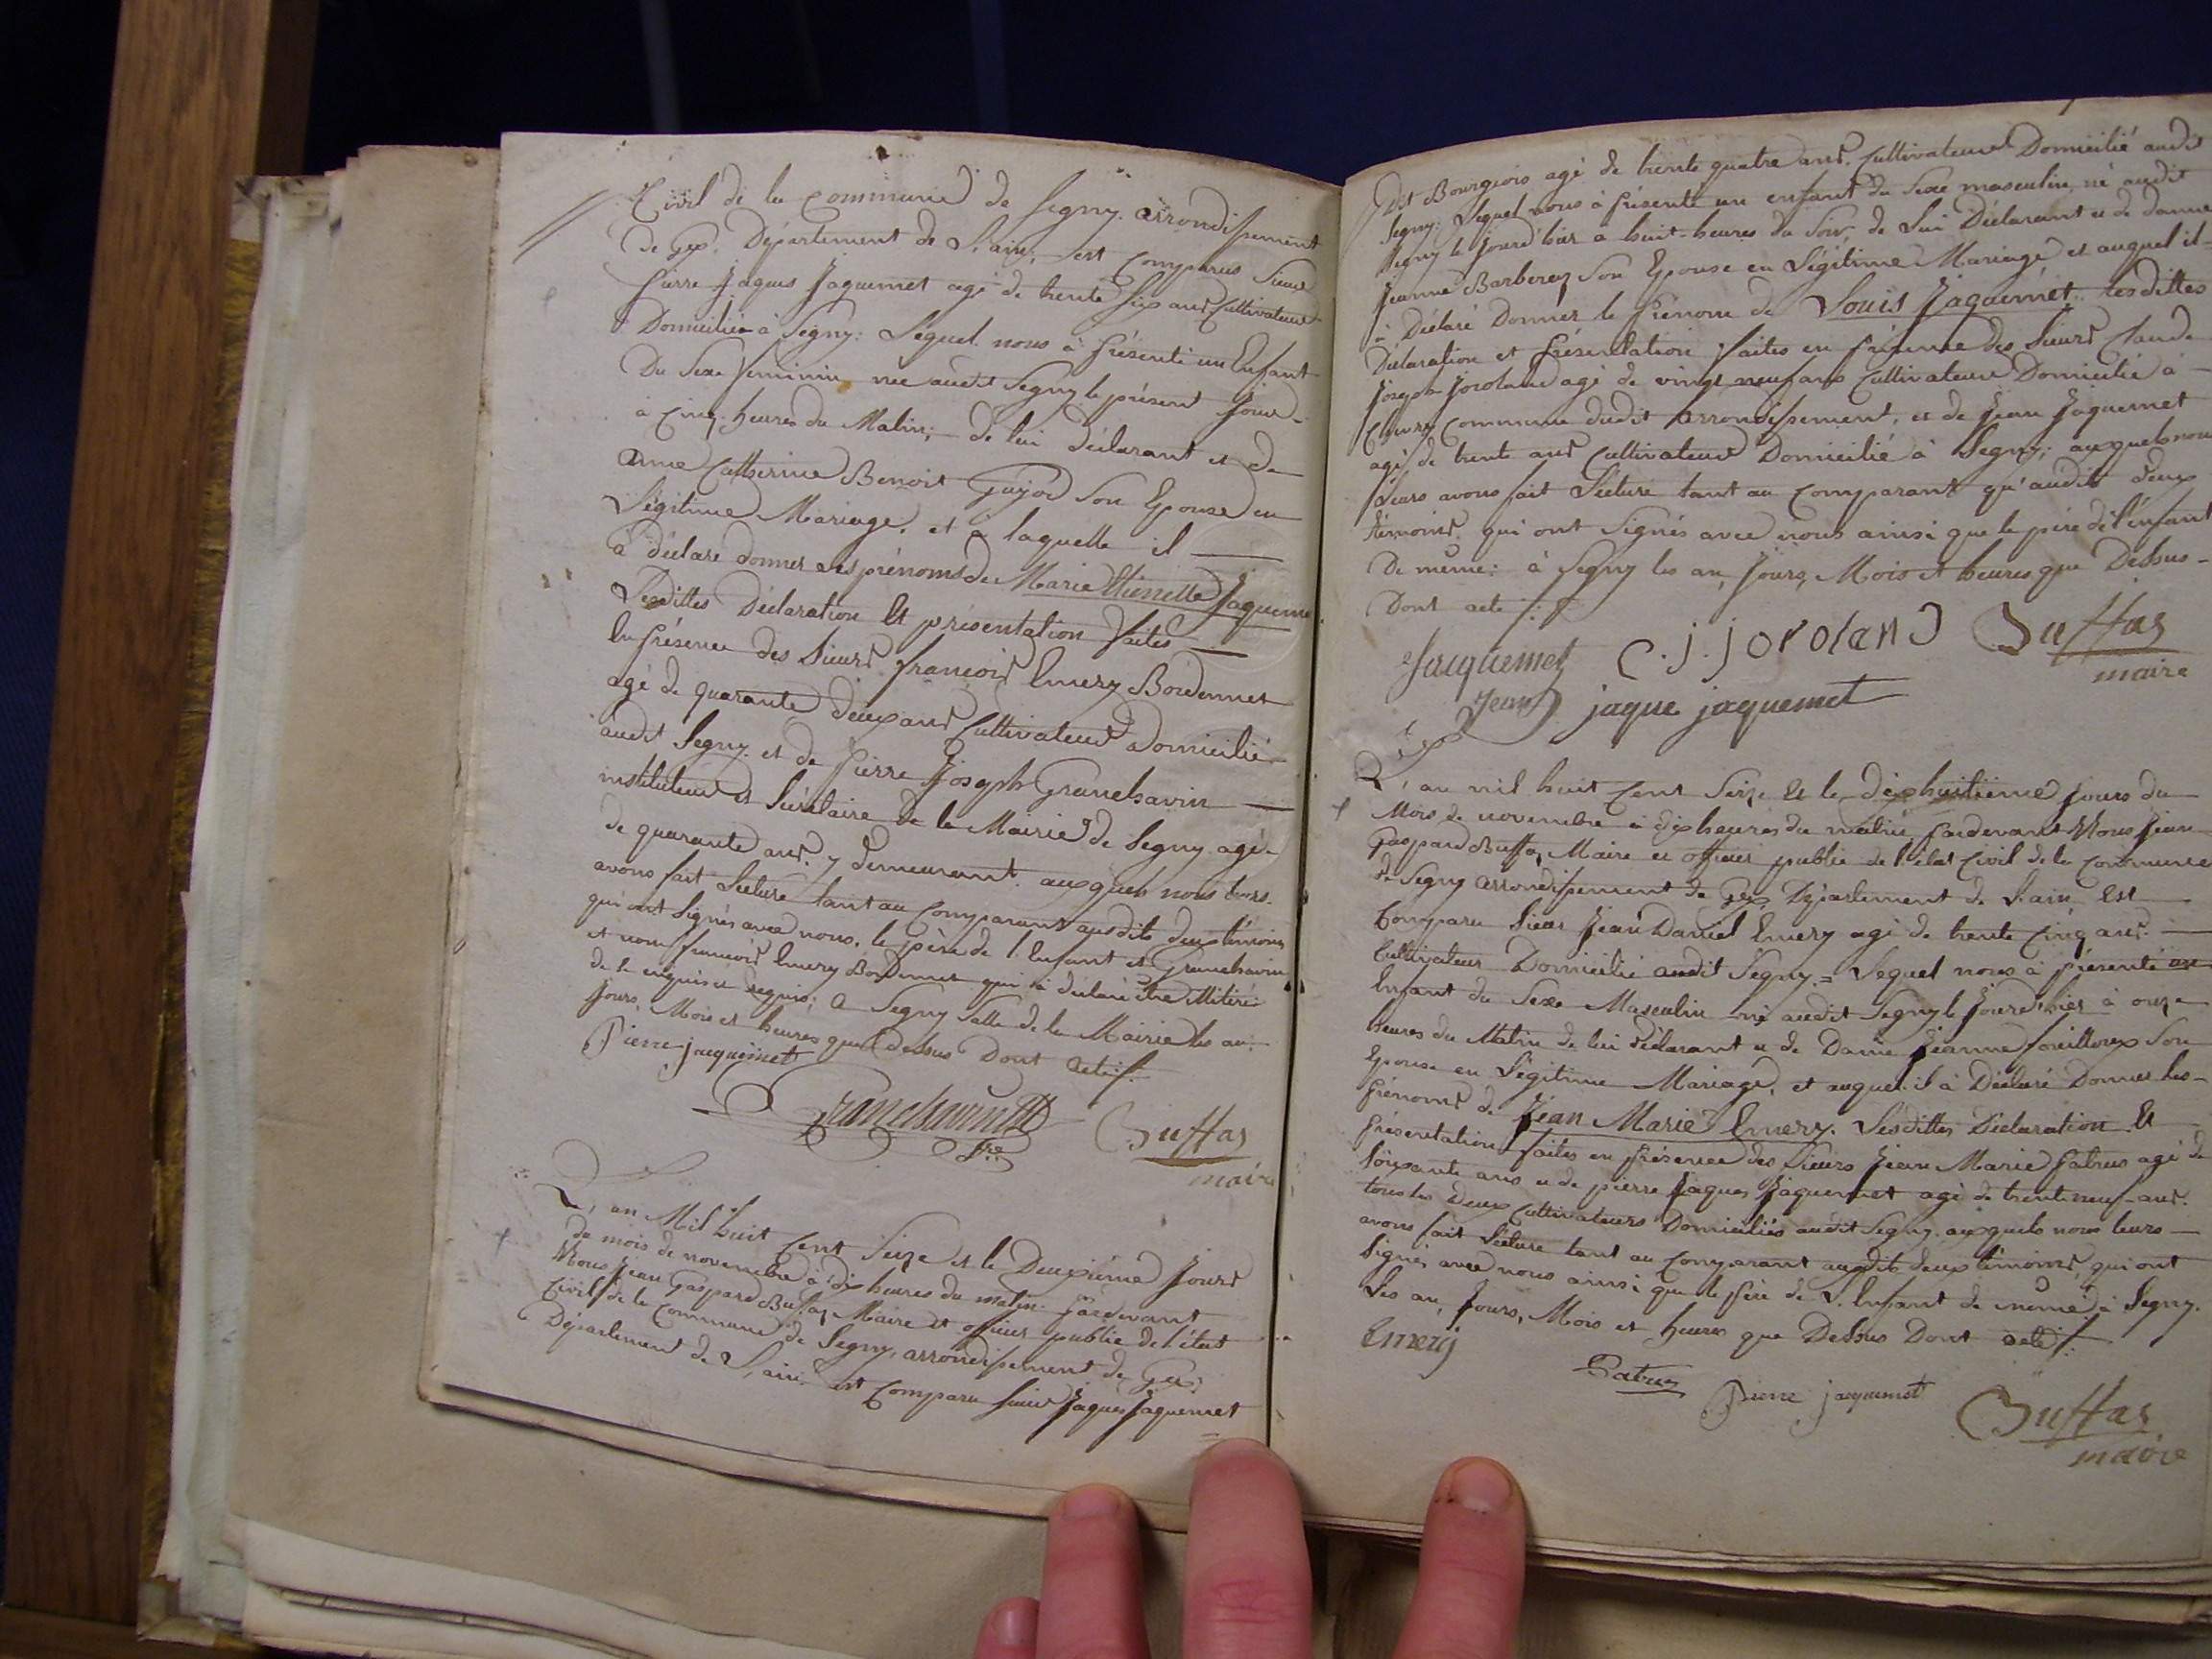 Civil de la Commune de Segny, arrondissement
de Gex, Département de L'ain, est Comparus Sieur
Pierre Jaques Jaquemet agé de trente six ans Cultivateur
Domicilié à Segny: Lequel nous à présenté un Enfant
Du Sexe feminin née audit Segny le présent jour
à cinq heures du Matin, de lui déclarant et de
Catherine Benoit Guyod Son Epouse en
Légitime Mariage, et à laquelle il
à déclaré donner les prénoms de Marie Etiennette Jaqueme
Lesdittes Déclaration Et présentation faites
En présence des Sieurs françois Emery Bordennet
agé de quarante deux ans Cultivateur Domicilié
audit Segny et de Pierre Joseph Granchavin
instituteur et Sécrétaire de la Mairie de Segny agé
de quarante ans y demeurant. auxquels nous leurs
avons fait Lecture tant au Comparant auxdits deux témoins
qui ont Signés avec nous, le père de l'Enfant et Granchavin
et non françois Emery Bordennet qui à déclaré être illitéré
de le enquis et requis; a Segny Salle de la Mairie les an.
Jours, Mois et heures que dessus Dont acte
Pierre jacquemet
Granchavin
Sre
Buffaz
maire
L'an Mil huit Cent Seize et le Deuxième Jours
du mois de novembre à dix heures du matin pardevant
Nous Jean Gaspard Buffaz, Maire et officier public de l'état
Civil de la Commune de Segny, arrondissement de Gex,
Département de L'ain est Comparu Sieur Jaques Jaquemet
Dit Bourgeois agé de trente quatre ans, Cultivateur Domicilié audit
Segny; Lequel nous à présenté un enfant du Sexe masculin né audit
Segny le jourd'hier a huit heures du Soir, de Lui Déclarant et de dame
Jeanne Barberoz Son Epouse en Légitime Mariage et auquel il
à Déclaré Donner le Prénom de Louis Jaquemet: lesdittes
Déclaration et présentation faites en présence des Sieurs Claude
Joseph Joroland agé de vingt neuf ans Cultivateur Domicilié à
Commune dudit Arrondissement, et de Jean Jaquemet
agé de trente ans Cultivateur Domicilié à Segny; auxquels nous
leurs avons fait Lecture tant au Comparant qu'audits deux
témoins qui ont Signés avec nous ainsi que le père de l'Enfant
De même: à Segny les an, Jours, Mois et heures que Dessus
Dont acte
Jacquemet
Jean
C. j. jorolanD
Buffaz
maire
jaque jaquemet
L'an mil huit Cent Seize Et le dix huitième Jours du
Mois de novembre à dix heures du matin, Pardevant Nous Jean
Gaspard Buffaz, Maire et officier public de l'état Civil de la Commune
de Segny arrondissement de Gex, Département de L'ain Est
Comparu Sieur Jean Daniel Emery agé de trente Cinq ans.
Cultivateur Domicilié audit Segny = Lequel nous à présenté un
Enfant du Sexe Masculin né audit Segny le jourd'hier à onze
heures du Matin de lui déclarant et de Dame Jeanne Son
Epouse en Légitime Mariage, et auquel il à Déclaré Donner les
Prénoms de Jean Marie Emery. Lesdittes Déclaration Et
Présentation faites en présence des Sieurs Jean Marie Patrus agé de
Soixante ans et de pierre Jaques Jaquemet agé de trente neuf ans.
tous les Deux Cultivateurs Domiciliés audit Segny auxquels nous leurs
avons fait Lecture tant au Comparant auxdits deux témoins, qui ont
Signés avec nous ainsi que le Père de L'Enfant de même à Segny.
Les an, Jours, Mois et heures que Dessus Dont acte
Emery
Patrus
Pierre jacquemet
Buffaz
maire